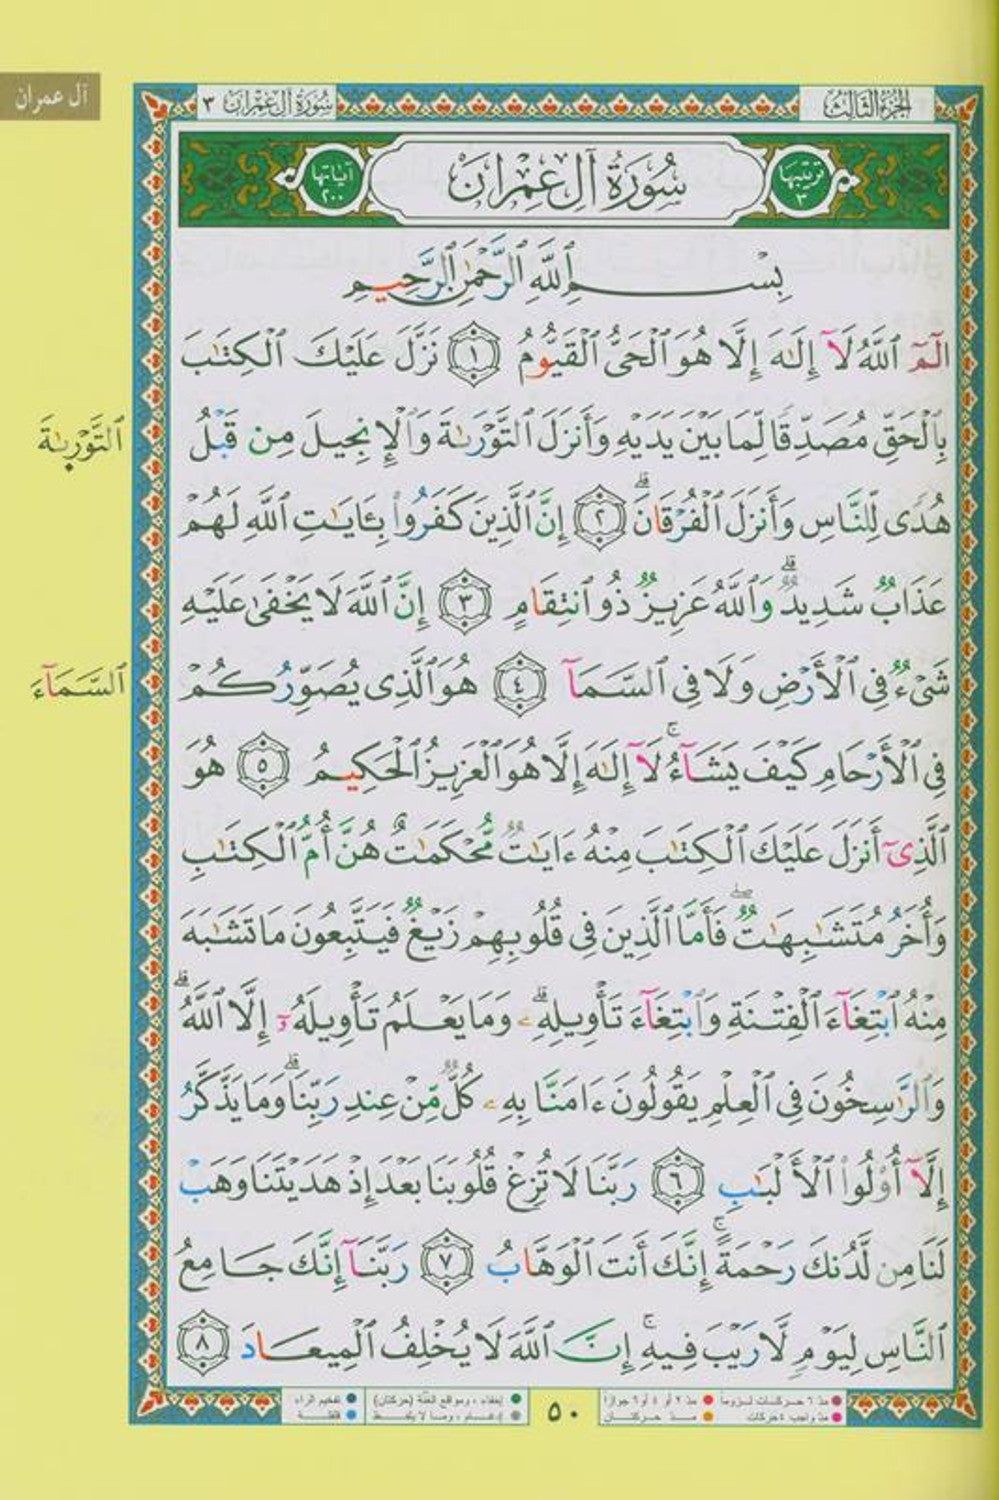 آل عمران
الجزء الثالث
سُورَة آل عِمْرَان ٣
ترتيبها ٣
سُورَةُ آلِ عِمْرَان
آياتها ٢٠٠
بِسْمِ ٱللَّهِ ٱلرَّحْمَٰنِ ٱلرَّحِيمِ
الٓمٓ ٱللَّهُ لَآ إِلَٰهَ إِلَّا هُوَ ٱلْحَىُّ ٱلْقَيُّومُ ١ نَزَّلَ عَلَيْكَ ٱلْكِتَٰبَ
بِٱلْحَقِّ مُصَدِّقًا لِّمَا بَيْنَ يَدَيْهِ وَأَنزَلَ ٱلتَّوْرَىٰةَ وَٱلْإِنجِيلَ مِن قَبْلُ
هُدًى لِّلنَّاسِ وَأَنزَلَ ٱلْفُرْقَانَ ۗ ٢ إِنَّ ٱلَّذِينَ كَفَرُوا۟ بِـَٔايَٰتِ ٱللَّهِ لَهُمْ
عَذَابٌ شَدِيدٌ ۗ وَٱللَّهُ عَزِيزٌ ذُو ٱنتِقَامٍ ٣ إِنَّ ٱللَّهَ لَا يَخْفَىٰ عَلَيْهِ
شَىْءٌ فِى ٱلْأَرْضِ وَلَا فِى ٱلسَّمَآ ٤ هُوَ ٱلَّذِى يُصَوِّرُكُمْ
فِى ٱلْأَرْحَامِ كَيْفَ يَشَآءُ ۚ لَآ إِلَٰهَ إِلَّا هُوَ ٱلْعَزِيزُ ٱلْحَكِيمُ ٥ هُوَ
ٱلَّذِىٓ أَنزَلَ عَلَيْكَ ٱلْكِتَٰبَ مِنْهُ ءَايَٰتٌ مُّحْكَمَٰتٌ هُنَّ أُمُّ ٱلْكِتَٰبِ
وَأُخَرُ مُتَشَٰبِهَٰتٌ ۖ فَأَمَّا ٱلَّذِينَ فِى قُلُوبِهِمْ زَيْغٌ فَيَتَّبِعُونَ مَا تَشَٰبَهَ
مِنْهُ ٱبْتِغَآءَ ٱلْفِتْنَةِ وَٱبْتِغَآءَ تَأْوِيلِهِۦ ۗ وَمَا يَعْلَمُ تَأْوِيلَهُۥٓ إِلَّا ٱللَّهُ ۗ
وَٱلرَّٰسِخُونَ فِى ٱلْعِلْمِ يَقُولُونَ ءَامَنَّا بِهِۦ كُلٌّ مِّنْ عِندِ رَبِّنَا ۗ وَمَا يَذَّكَّرُ
إِلَّآ أُو۟لُوا۟ ٱلْأَلْبَٰبِ ٦ رَبَّنَا لَا تُزِغْ قُلُوبَنَا بَعْدَ إِذْ هَدَيْتَنَا وَهَبْ
لَنَا مِن لَّدُنكَ رَحْمَةً ۚ إِنَّكَ أَنتَ ٱلْوَهَّابُ ٧ رَبَّنَآ إِنَّكَ جَامِعُ
ٱلنَّاسِ لِيَوْمٍ لَّا رَيْبَ فِيهِ ۚ إِنَّ ٱللَّهَ لَا يُخْلِفُ ٱلْمِيعَادَ ٨
ٱلتَّوْرَىٰةَ
ٱلسَّمَآءَ
مدّ ٦ حركات لزوماً
مدّ ٢ أو ٤ أو ٦ جوازاً
مدّ واجب ٤ حركات
مدّ حركتان
٥٠
إخفاء، ومواقع الغنّة (حركتان)
تفخيم الراء
إدغام، وما لا يلفظ
قلقلة